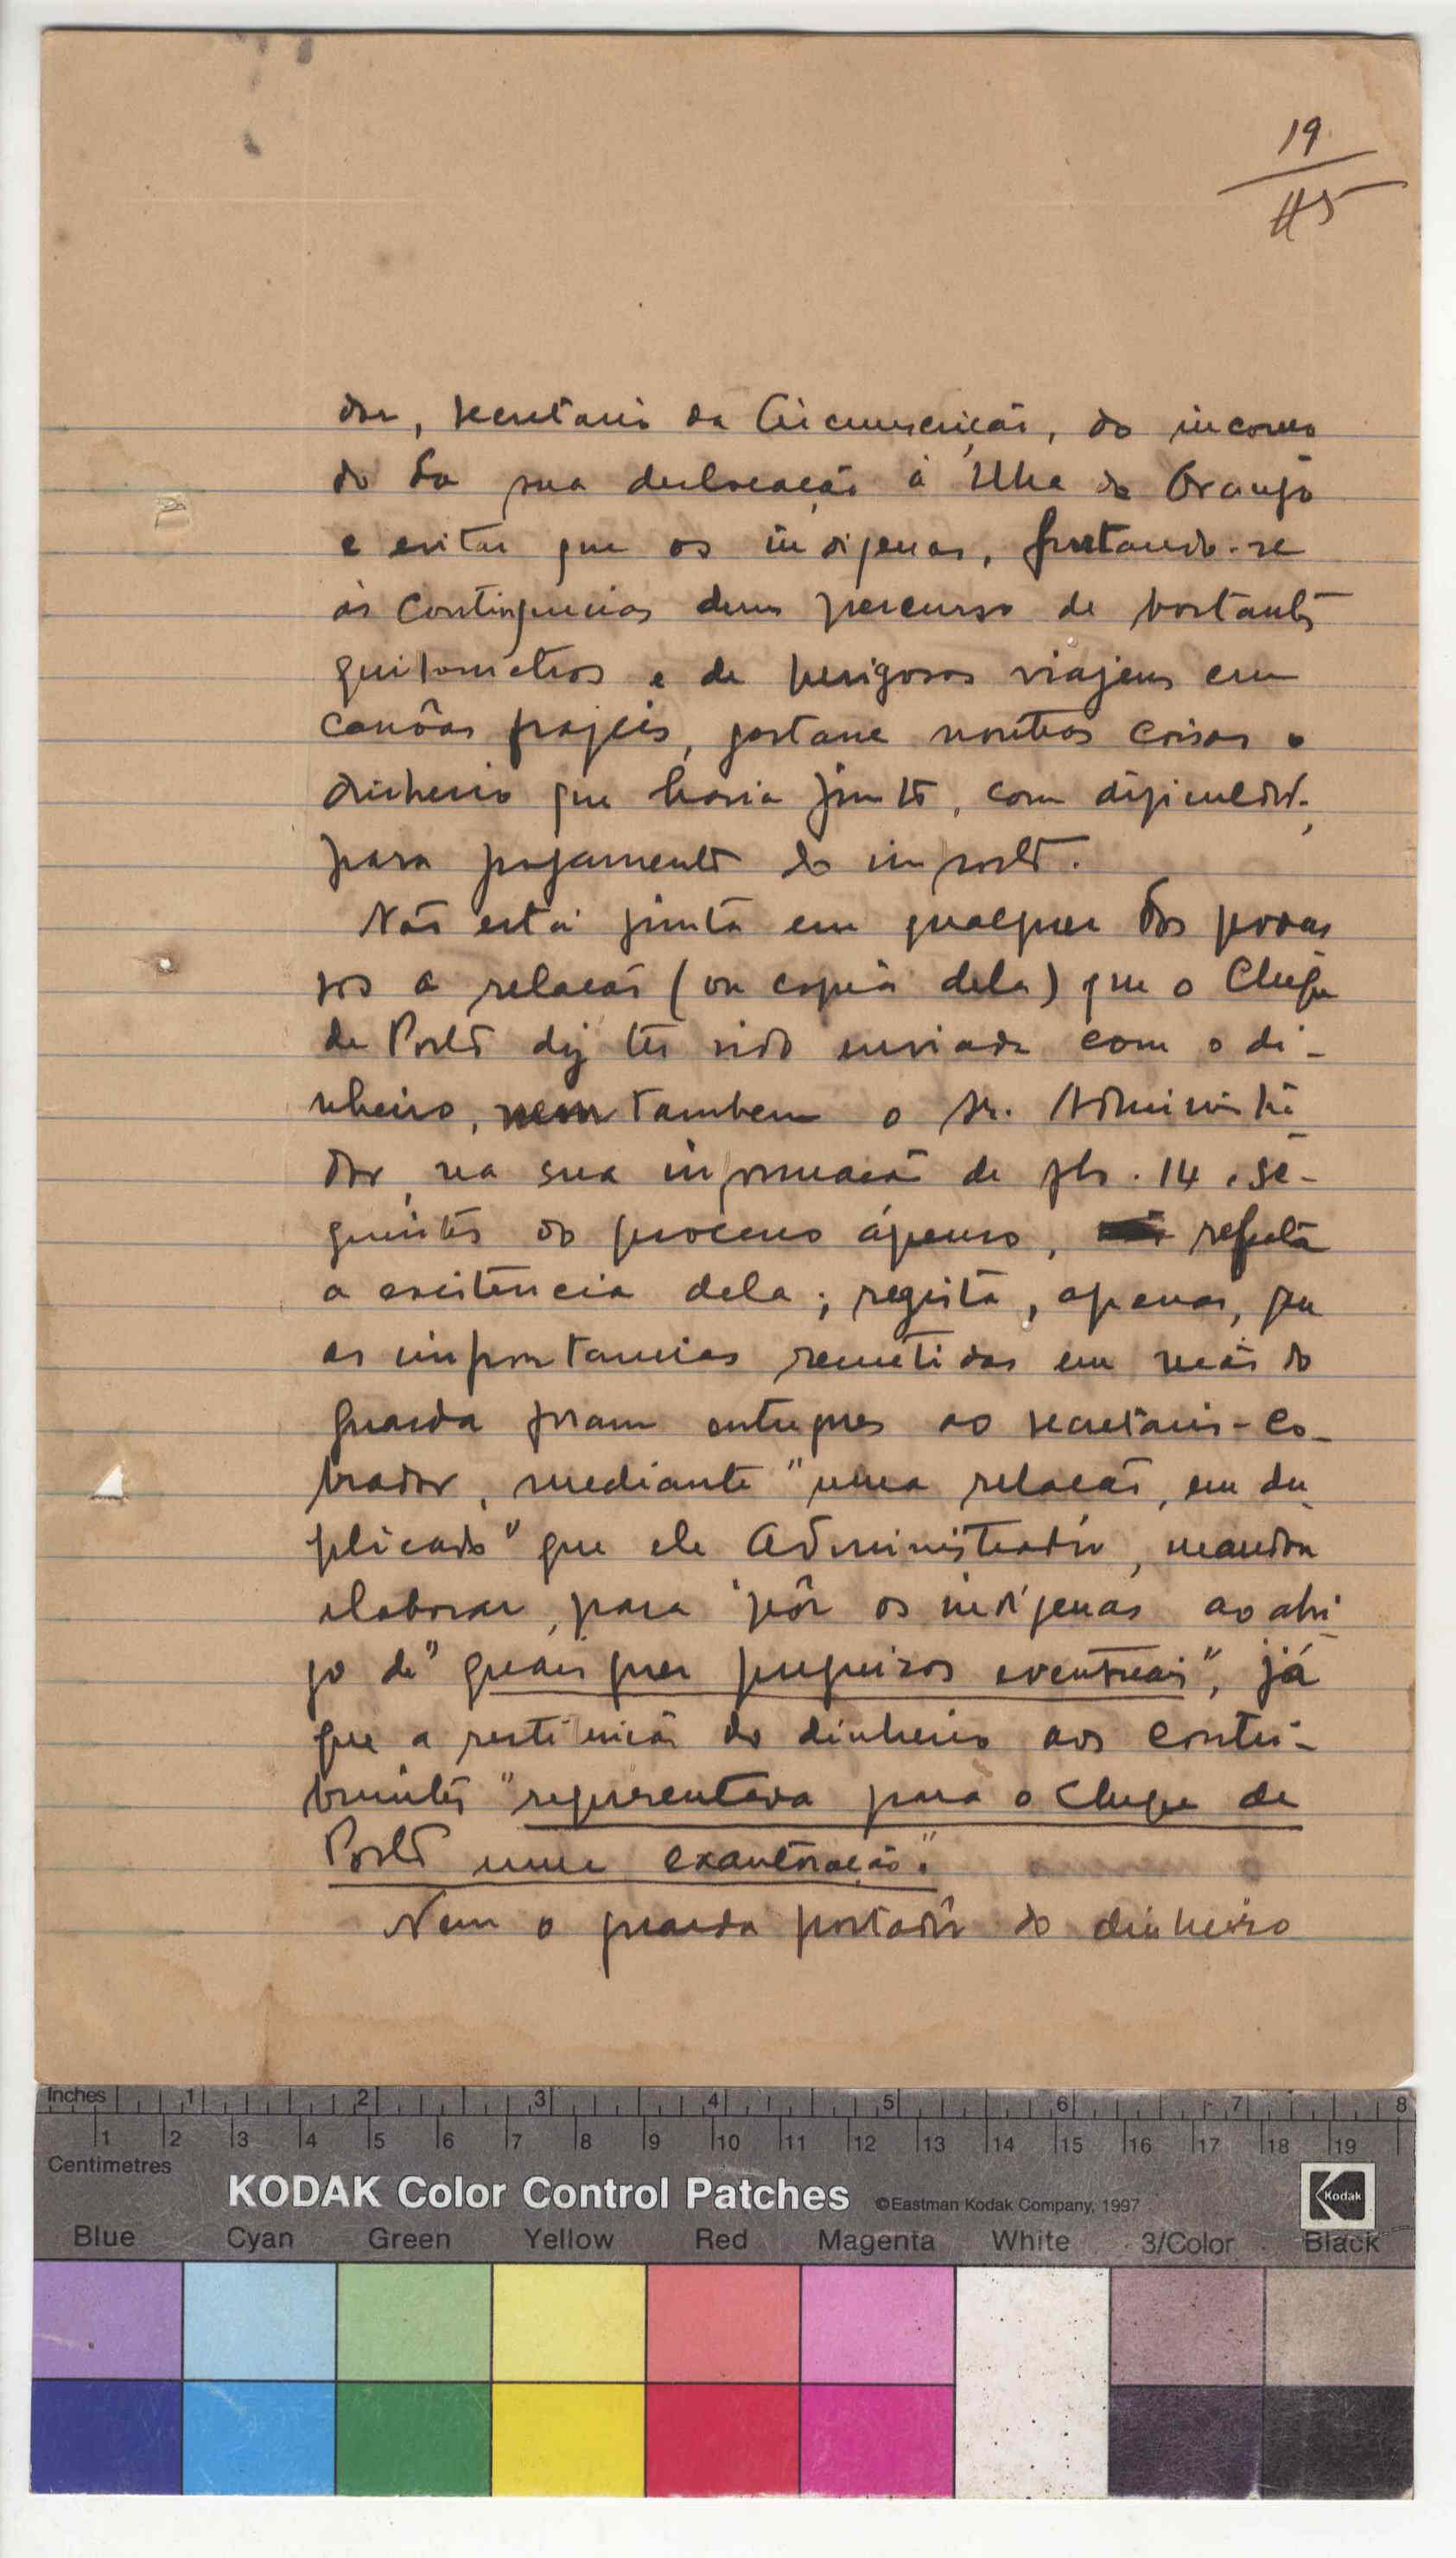 19
45
dor, secretario da Circunscrição, do incomo
do da sua deslocação à Ilha de Orango
e evitar que os indigenas, furtando-se
às contingencias dum percurso de bastantes
quilometros e de perigosas viajens em
canôas frajeis, gastasse noutras coisas o
dinheiro que havia junto, com dificuldade,
para pagamento do imposto.
Não está junta em qualquer dos proces
sos a relação (ou copia dela) que o Chefe
de Posto diz ter sido enviada com o di-
nheiro, nem tambem o Sr. Administra
dor, na sua informação de fls. 14 e se-
guintes do processo ápenso, refuta
a existencia dela; regista, apenas, que
as importancias remetidas em mão do
guarda foram entregues ao secretario-co-
brador, mediante "uma relação, em du
plicado" que ele Administrador, mandou
elaborar, para pôr os indigenas ao abri
go de "quaisquer prejuizos eventuais", já
que a restituição do dinheiro aos contri-
buintes "representava para o Chefe de
Posto uma exautoração".
Nem o guarda portador do dinheiro
Inches 1 2 3 4 5 6 7 8
1 2 3 4 5 6 7 8 9 10 11 12 13 14 15 16 17 18 19
Centimetres
KODAK Color Control Patches ©Eastman Kodak Company, 1997 Kodak
Blue Cyan Green Yellow Red Magenta White 3/Color Black